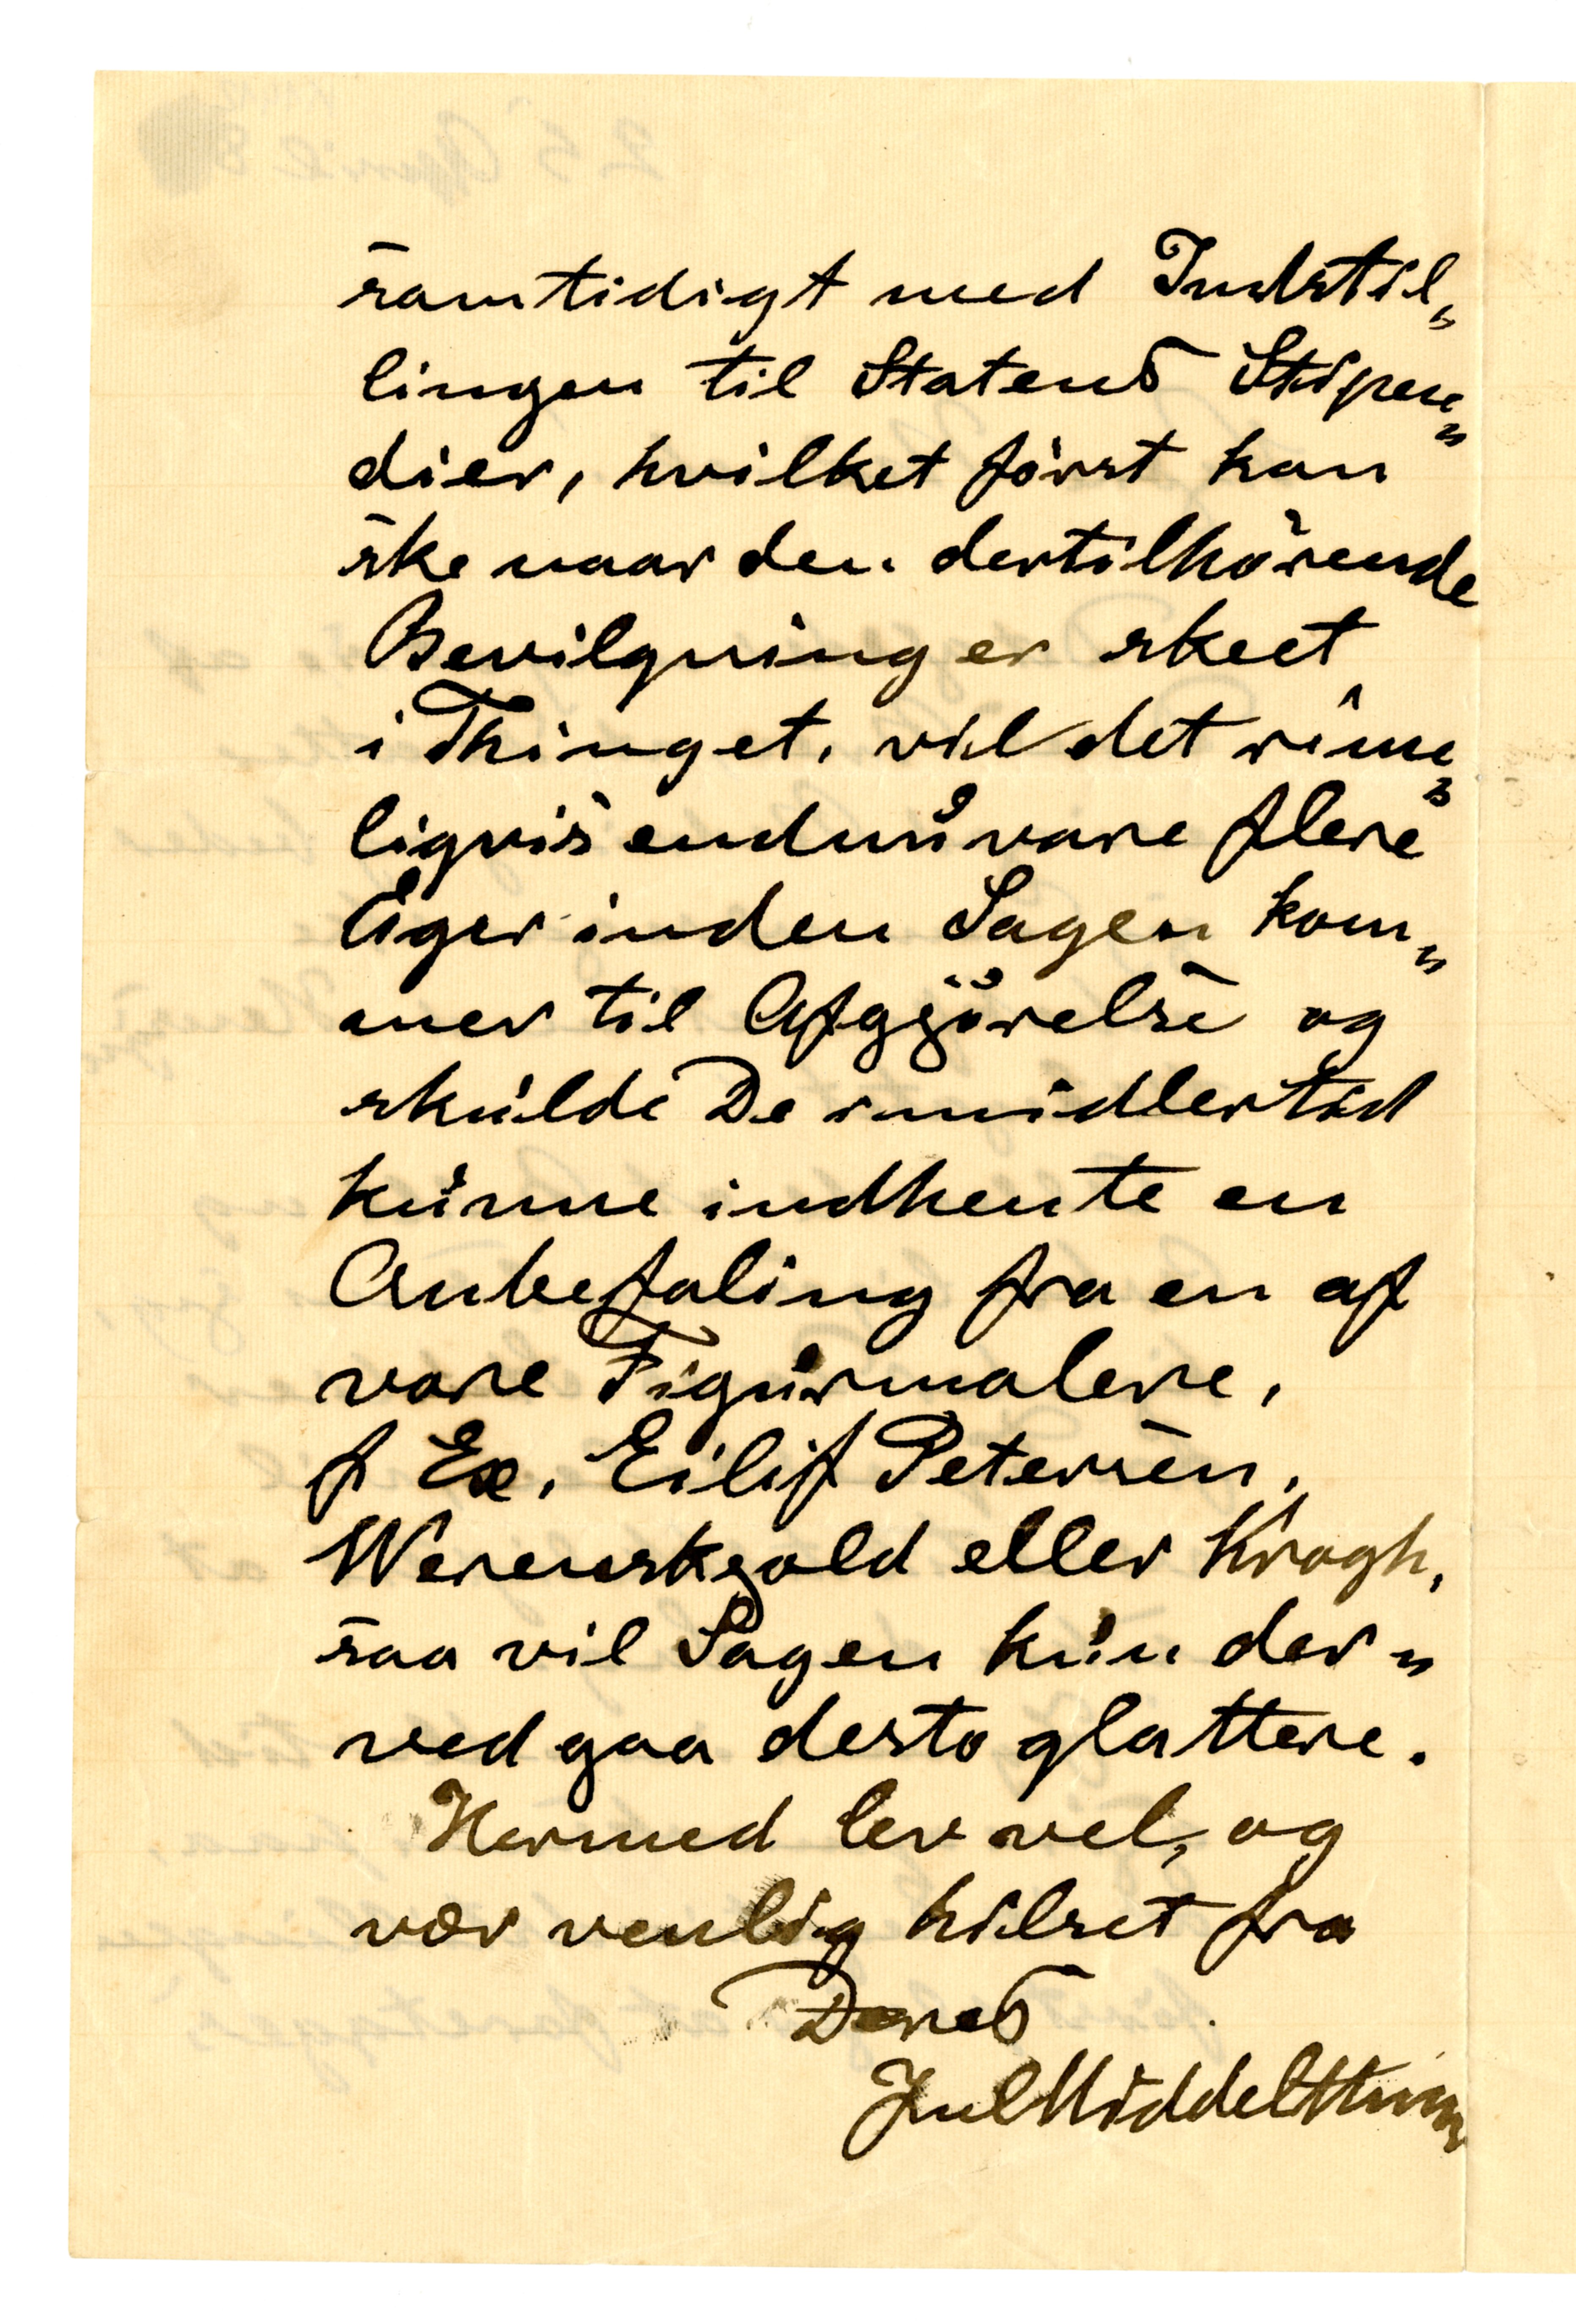 samtidigt med Indstil„
lingen til Statens Stipen„
dier, hvilket først kan
ske naar den dertilhørende
Bevilgning er skeet
i Thinget, vil det rime„
ligvis endnu vare flere
Uger inden Sagen kom„
mer til Afgjörelse og
skulde De imidlertid
kunne indhente en
Anbefaling fra en af
vore Figurmalere,
f Ex. Eilif Petersen,
Werenskjold eller Krogh,
saa vil Sagen kun der„
ved gaa desto glattere.
Hermed lev vel, og
vær venlig hilset fra
Deres
Jul Middelthun